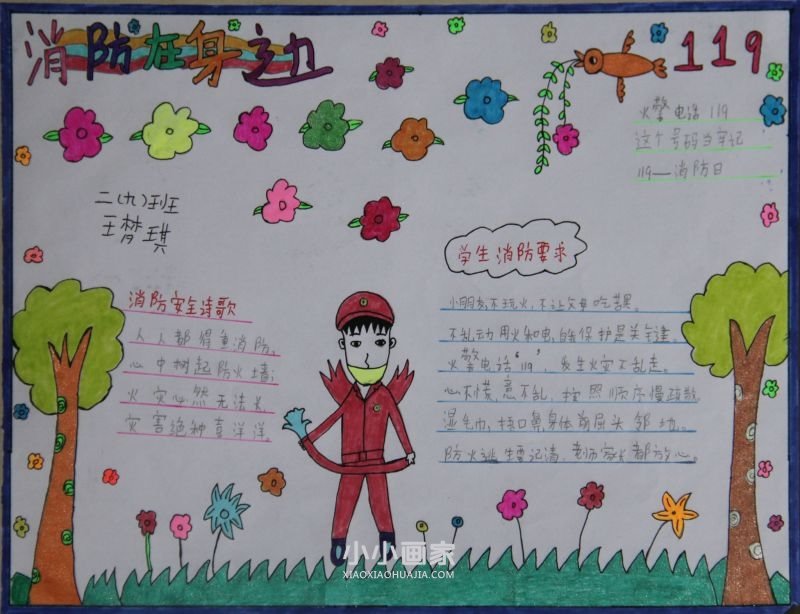 消防在身边
119
火警电话119
这个号码当牢记
119—消防日
二(九)班
王梦琪
学生消防要求
消防安全诗歌
人人都得重消防,
心中树起防火墙;
火灾必然无法长,
灾害绝种喜洋洋。
小朋友,不玩火,不让父母吃苦果。
不乱动用火和电,自我保护是关键。
火警电话“119”,发生火灾不乱走。
心不慌,意不乱,按照顺序慢疏散。
湿毛巾,捂口鼻,身体前屈头邻地。
防火逃生要记清,老师家长都放心。
小小画家
XIAOXIAOHUAJIA.COM